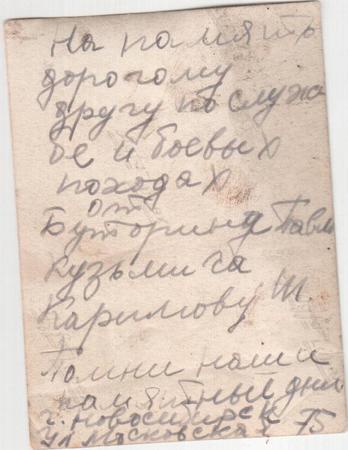 На память
дорогому
другу по служ
бе и боевых
походах
от
Буторина Павл
Кузьмича
Каримову Ш.
Помни наши
памятные дни
г. Новосибирск
ул 75